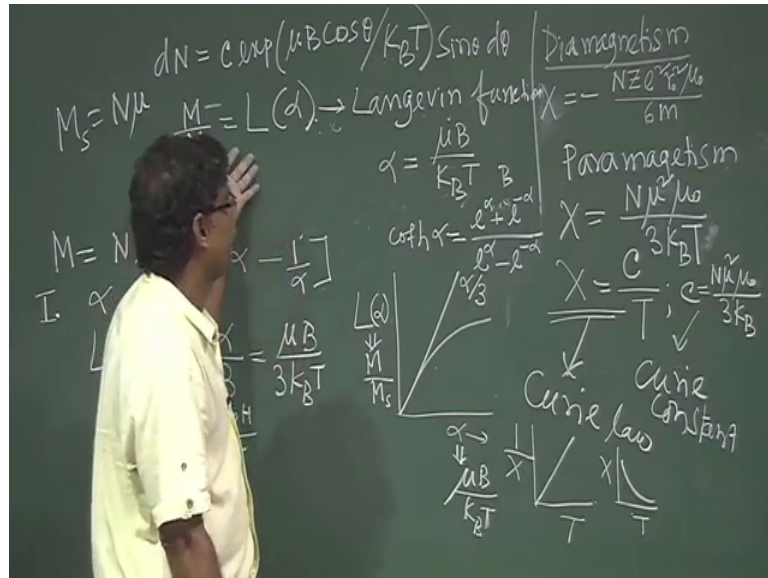 dN = C exp(μB cosθ/K_BT) Sinθ dθ
M_s = Nμ
M = L(α) → Langevin function
α = μB / K_BT
B
coth α = e^α + e^-α / e^α - e^-α
M = N
α - 1/α ]
I. α
L
= μB / 3K_BT
L(α)
⇓
M / M_s
α/3
α →
⇓
μB / K_BT
Diamagnetism
χ = - NZe²r₀²μ₀ / 6m
Paramagetism
χ = Nμ²μ₀ / 3K_BT
χ = C / T ; C = Nμ²μ₀ / 3K_B
Curie law
Curie constant
1/χ
T
χ
T